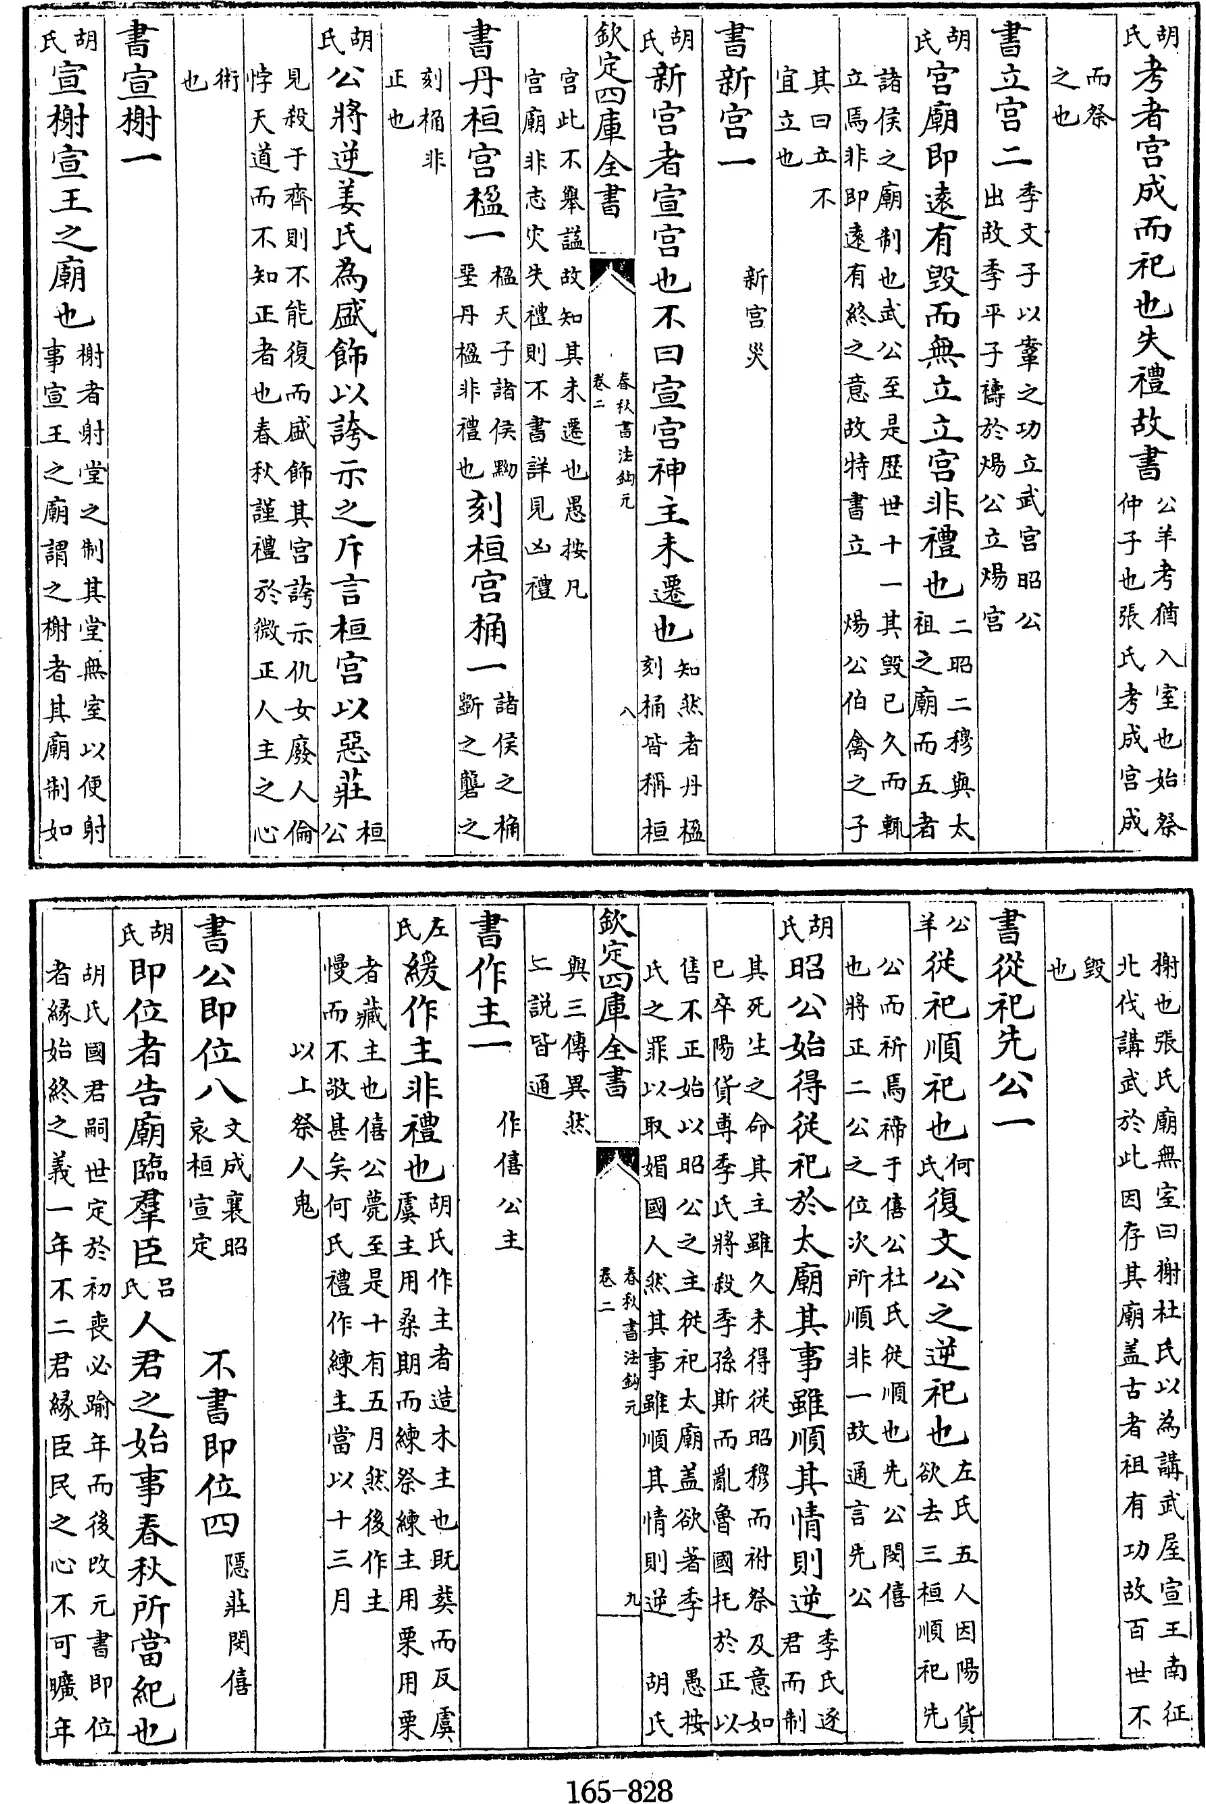 胡氏考者宫成而祀也失禮故書公羊考猶入室也始祭仲子也張氏考成宫成
而祭之也
書立宫二季文子以鞌之功立武宫昭公出故季平子禱於煬公立煬宫
胡氏宫廟即遠有毀而無立立宫非禮也二昭二穆與太祖之廟而五者
諸侯之廟制也武公至是歴世十一其毀已久而輒立焉非即遠有終之意故特書立 煬公伯禽之子
其曰立不宜立也
書新宫一 新宫災
胡氏新宫者宣宫也不曰宣宫神主未遷也知然者丹楹刻桷皆稱桓
欽定四庫全書 春秋書法鈎元 卷二 八
宫此不舉諡故知其未遷也愚按凡宫廟非志災失禮則不書詳見凶禮
書丹桓宫楹一楹天子諸侯黝堊丹楹非禮也刻桓宫桷一諸侯之桷斲之礱之
刻桷非正也
胡氏公將逆姜氏為盛飾以誇示之斥言桓宫以惡莊桓公
見殺于齊則不能復而盛飾其宫誇示仇女廢人倫悖天道而不知正者也春秋謹禮於微正人主之心
術也
書宣榭一
胡氏宣榭宣王之廟也榭者射堂之制其堂無室以便射事宣王之廟謂之榭者其廟制如
榭也張氏廟無室曰榭杜氏以為講武屋宣王南征北伐講武於此因存其廟盖古者祖有功故百世不
毀也
書從祀先公一
公羊從祀順祀也何氏復文公之逆祀也左氏五人因陽貨欲去三桓順祀先
公而祈焉禘于僖公杜氏從順也先公閔僖也將正二公之位次所順非一故通言先公
胡氏昭公始得從祀於太廟其事雖順其情則逆季氏逐君而制
其死生之命其主雖久未得從昭穆而祔祭及意如已卒陽貨專季氏將殺季孫斯而亂魯國托於正以
售不正始以昭公之主從祀太廟盖欲著季氏之罪以取媚國人然其事雖順其情則逆 愚按胡氏
欽定四庫全書 春秋書法鈎元 卷二 九
與三傳異然二説皆通
書作主一 作僖公主
左氏緩作主非禮也胡氏作主者造木主也既葬而反虞虞主用桑期而練祭練主用栗用栗
者藏主也僖公薨至是十有五月然後作主慢而不敬甚矣何氏禮作練主當以十三月
以上祭人鬼
書公即位八文成襄昭哀桓宣定 不書即位四隠莊閔僖
胡氏即位者告廟臨羣臣吕氏人君之始事春秋所當紀也
胡氏國君嗣世定於初喪必踰年而後改元書即位者縁始終之義一年不二君縁臣民之心不可曠年
165-828